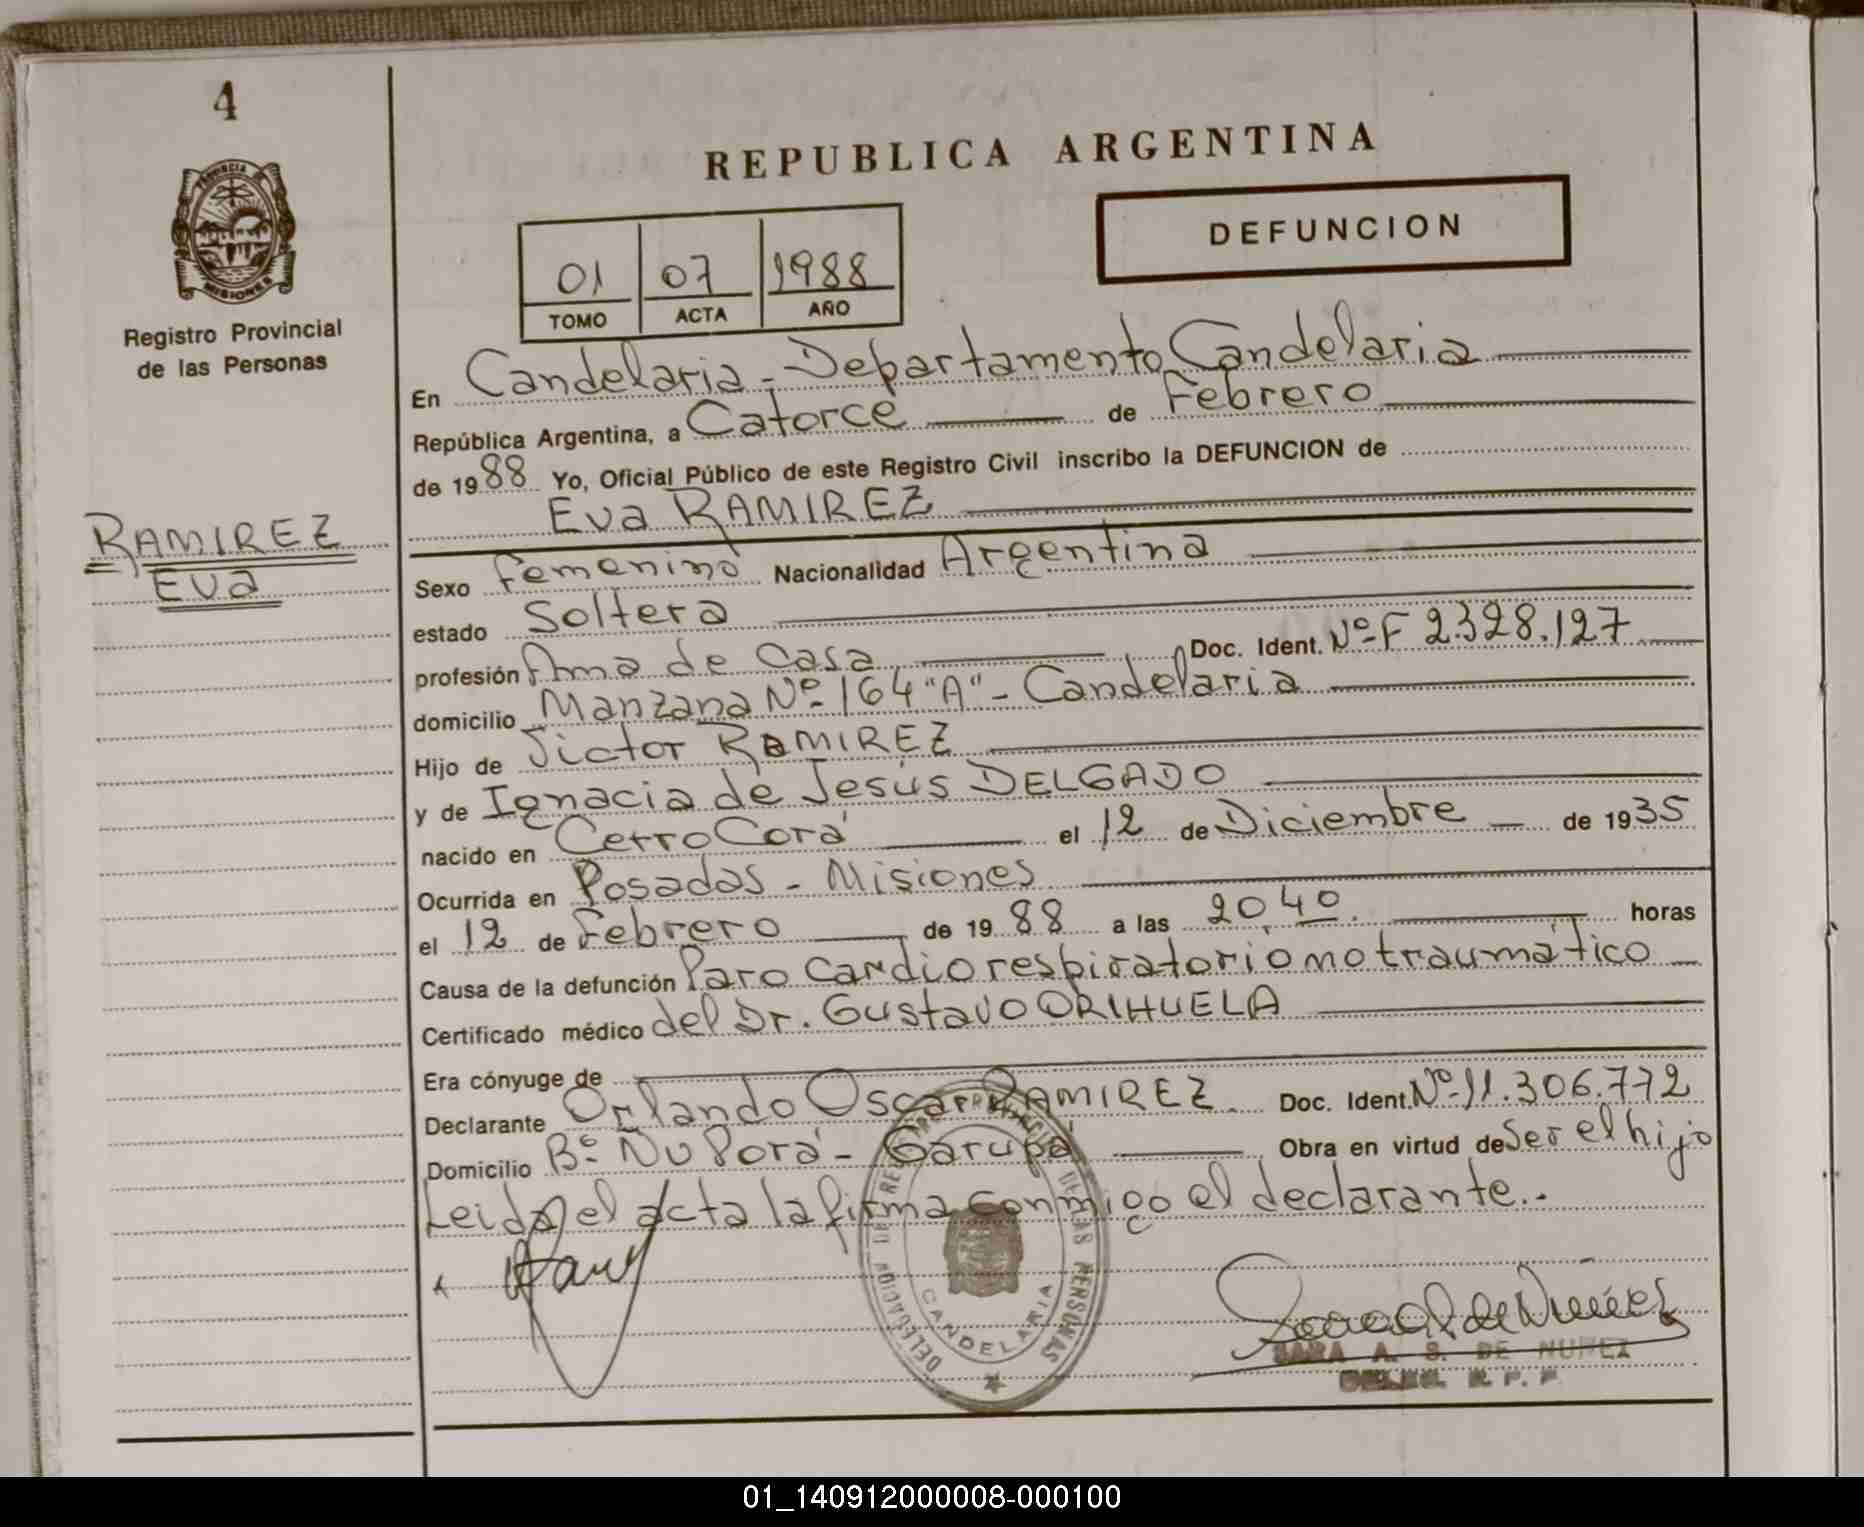 4
PROVINCIA DE
MISIONES
Registro Provincial
de las Personas
RAMIREZ
Eva
REPUBLICA ARGENTINA
DEFUNCION
01 07 1988
TOMO ACTA AÑO
En Candelaria - Departamento Candelaria
República Argentina, a Catorce de Febrero
de 1988 Yo, Oficial Público de este Registro Civil inscribo la DEFUNCION de
Eva RAMIREZ
Sexo Femenino Nacionalidad Argentina
estado Soltera
profesión Ama de Casa Doc. Ident. Nº F 2.328.127
domicilio Manzana Nº 164 "A" - Candelaria
Hijo de Victor RAMIREZ
y de Ignacia de Jesús DELGADO
nacido en Cerro Corá el 12 de Diciembre de 1935
Ocurrida en Posadas - Misiones
el 12 de Febrero de 1988 a las 20,40. horas
Causa de la defunción Paro Cardiorespiratorio no traumático
Certificado médico del Dr. Gustavo ORIHUELA
Era cónyuge de
Declarante Orlando Oscar RAMIREZ Doc. Ident. Nº 11.306.772
Domicilio Bº Ñu Porá - Garupá Obra en virtud de Ser el hijo
Leida el acta la firma conmigo el declarante.-
DELEGACION DE REG. PROVINCIAL DE LAS PERSONAS
CANDELARIA
SARA A. S. DE NUÑEZ
R. P. P.
01_140912000008-000100